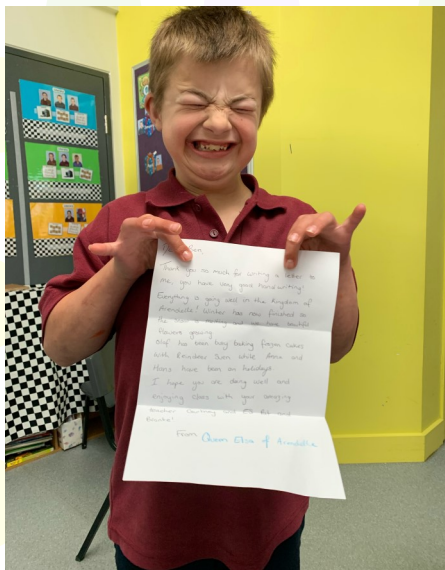 Thank you so much for writing a letter to
me, you have very good handwriting!
Everything is going well in the Kingdom of
Arendelle! Winter has now finished so
the
flowers growing.
Olaf has been busy baking frozen cakes
with Reindeer Sven while Anna and
Hans have been on holidays.
I hope you are doing well and
enjoying class with your amazing
teacher Courtney and and
From Queen Elsa of Arendelle